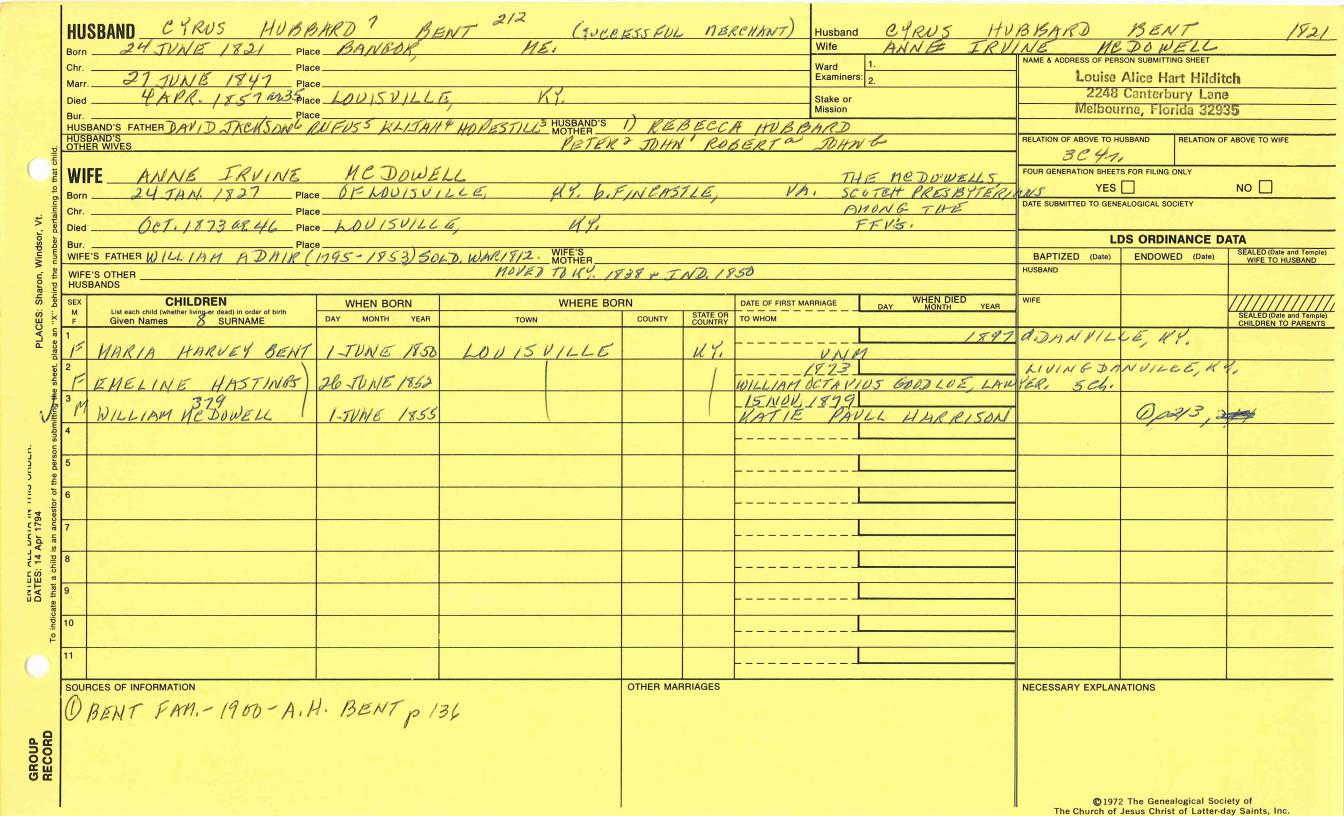 HUSBAND CYRUS HUBBARD 7 BENT 212 (SUCCESSFUL MERCHANT)
Born 24 JUNE 1821 Place BANGOR, ME.
Chr. Place
Marr. 27 JUNE 1847 Place
Died 4 APR. 1857 ae 35 Place LOUISVILLE, KY.
Bur. Place
HUSBAND'S FATHER DAVID JACKSON6 RUFUS5 ELIJAH4 HOPESTILL3 HUSBAND'S MOTHER 1) REBECCA HUBBARD
HUSBAND'S OTHER WIVES PETER2 JOHN1 ROBERTa JOHNb
Husband CYRUS HUBBARD BENT 1821
Wife ANNE IRVINE McDOWELL
Ward Examiners: 1.
2.
Stake or Mission
NAME & ADDRESS OF PERSON SUBMITTING SHEET
Louise Alice Hart Hilditch
2248 Canterbury Lane
Melbourne, Florida 32935
RELATION OF ABOVE TO HUSBAND RELATION OF ABOVE TO WIFE
3C4r.
FOUR GENERATION SHEETS FOR FILING ONLY
YES NO
DATE SUBMITTED TO GENEALOGICAL SOCIETY
WIFE ANNE IRVINE McDOWELL
Born 24 JAN. 1827 Place OF LOUISVILLE, KY. b. FINCASTLE, VA.
Chr. Place
Died OCT. 1873 ae 46 Place LOUISVILLE, KY.
Bur. Place
THE McDOWELLS,
SCOTCH PRESBYTERIANS
AMONG THE
FFV'S.
WIFE'S FATHER WILLIAM ADAIR (1795-1853) SOLD. WAR 1812. WIFE'S MOTHER
WIFE'S OTHER HUSBANDS MOVED TO KY. 1838 & IND. 1850
LDS ORDINANCE DATA
BAPTIZED (Date) ENDOWED (Date) SEALED (Date and Temple) WIFE TO HUSBAND
HUSBAND
WIFE
SEALED (Date and Temple) CHILDREN TO PARENTS
SEX M F
CHILDREN
List each child (whether living or dead) in order of birth
Given Names 8 SURNAME
WHEN BORN
DAY MONTH YEAR
WHERE BORN
TOWN COUNTY STATE OR COUNTRY
DATE OF FIRST MARRIAGE
TO WHOM
WHEN DIED
DAY MONTH YEAR
1 F MARIA HARVEY BENT 1 JUNE 1850 LOUISVILLE KY. UNM 1897 d. DANVILLE, KY.
2 F EMELINE HASTINGS 26 JUNE 1852 1873 LIVING DANVILLE, KY.
WILLIAM OCTAVIUS GOODLOE, LAWYER. 5 Ch.
3 M 379 WILLIAM McDOWELL 1 JUNE 1855 15 NOV. 1879
KATIE PAULL HARRISON ① p213,
4
5
6
7
8
9
10
11
SOURCES OF INFORMATION
① BENT FAM.-1900-A.H. BENT p 136
OTHER MARRIAGES
NECESSARY EXPLANATIONS
©1972 The Genealogical Society of
The Church of Jesus Christ of Latter-day Saints, Inc.
PLACES: Sharon, Windsor, Vt.
ENTER ALL DATA IN THIS ORDER:
DATES: 14 Apr 1794
To indicate that a child is an ancestor of the person submitting the sheet, place an "X" behind the number pertaining to that child.
GROUP RECORD